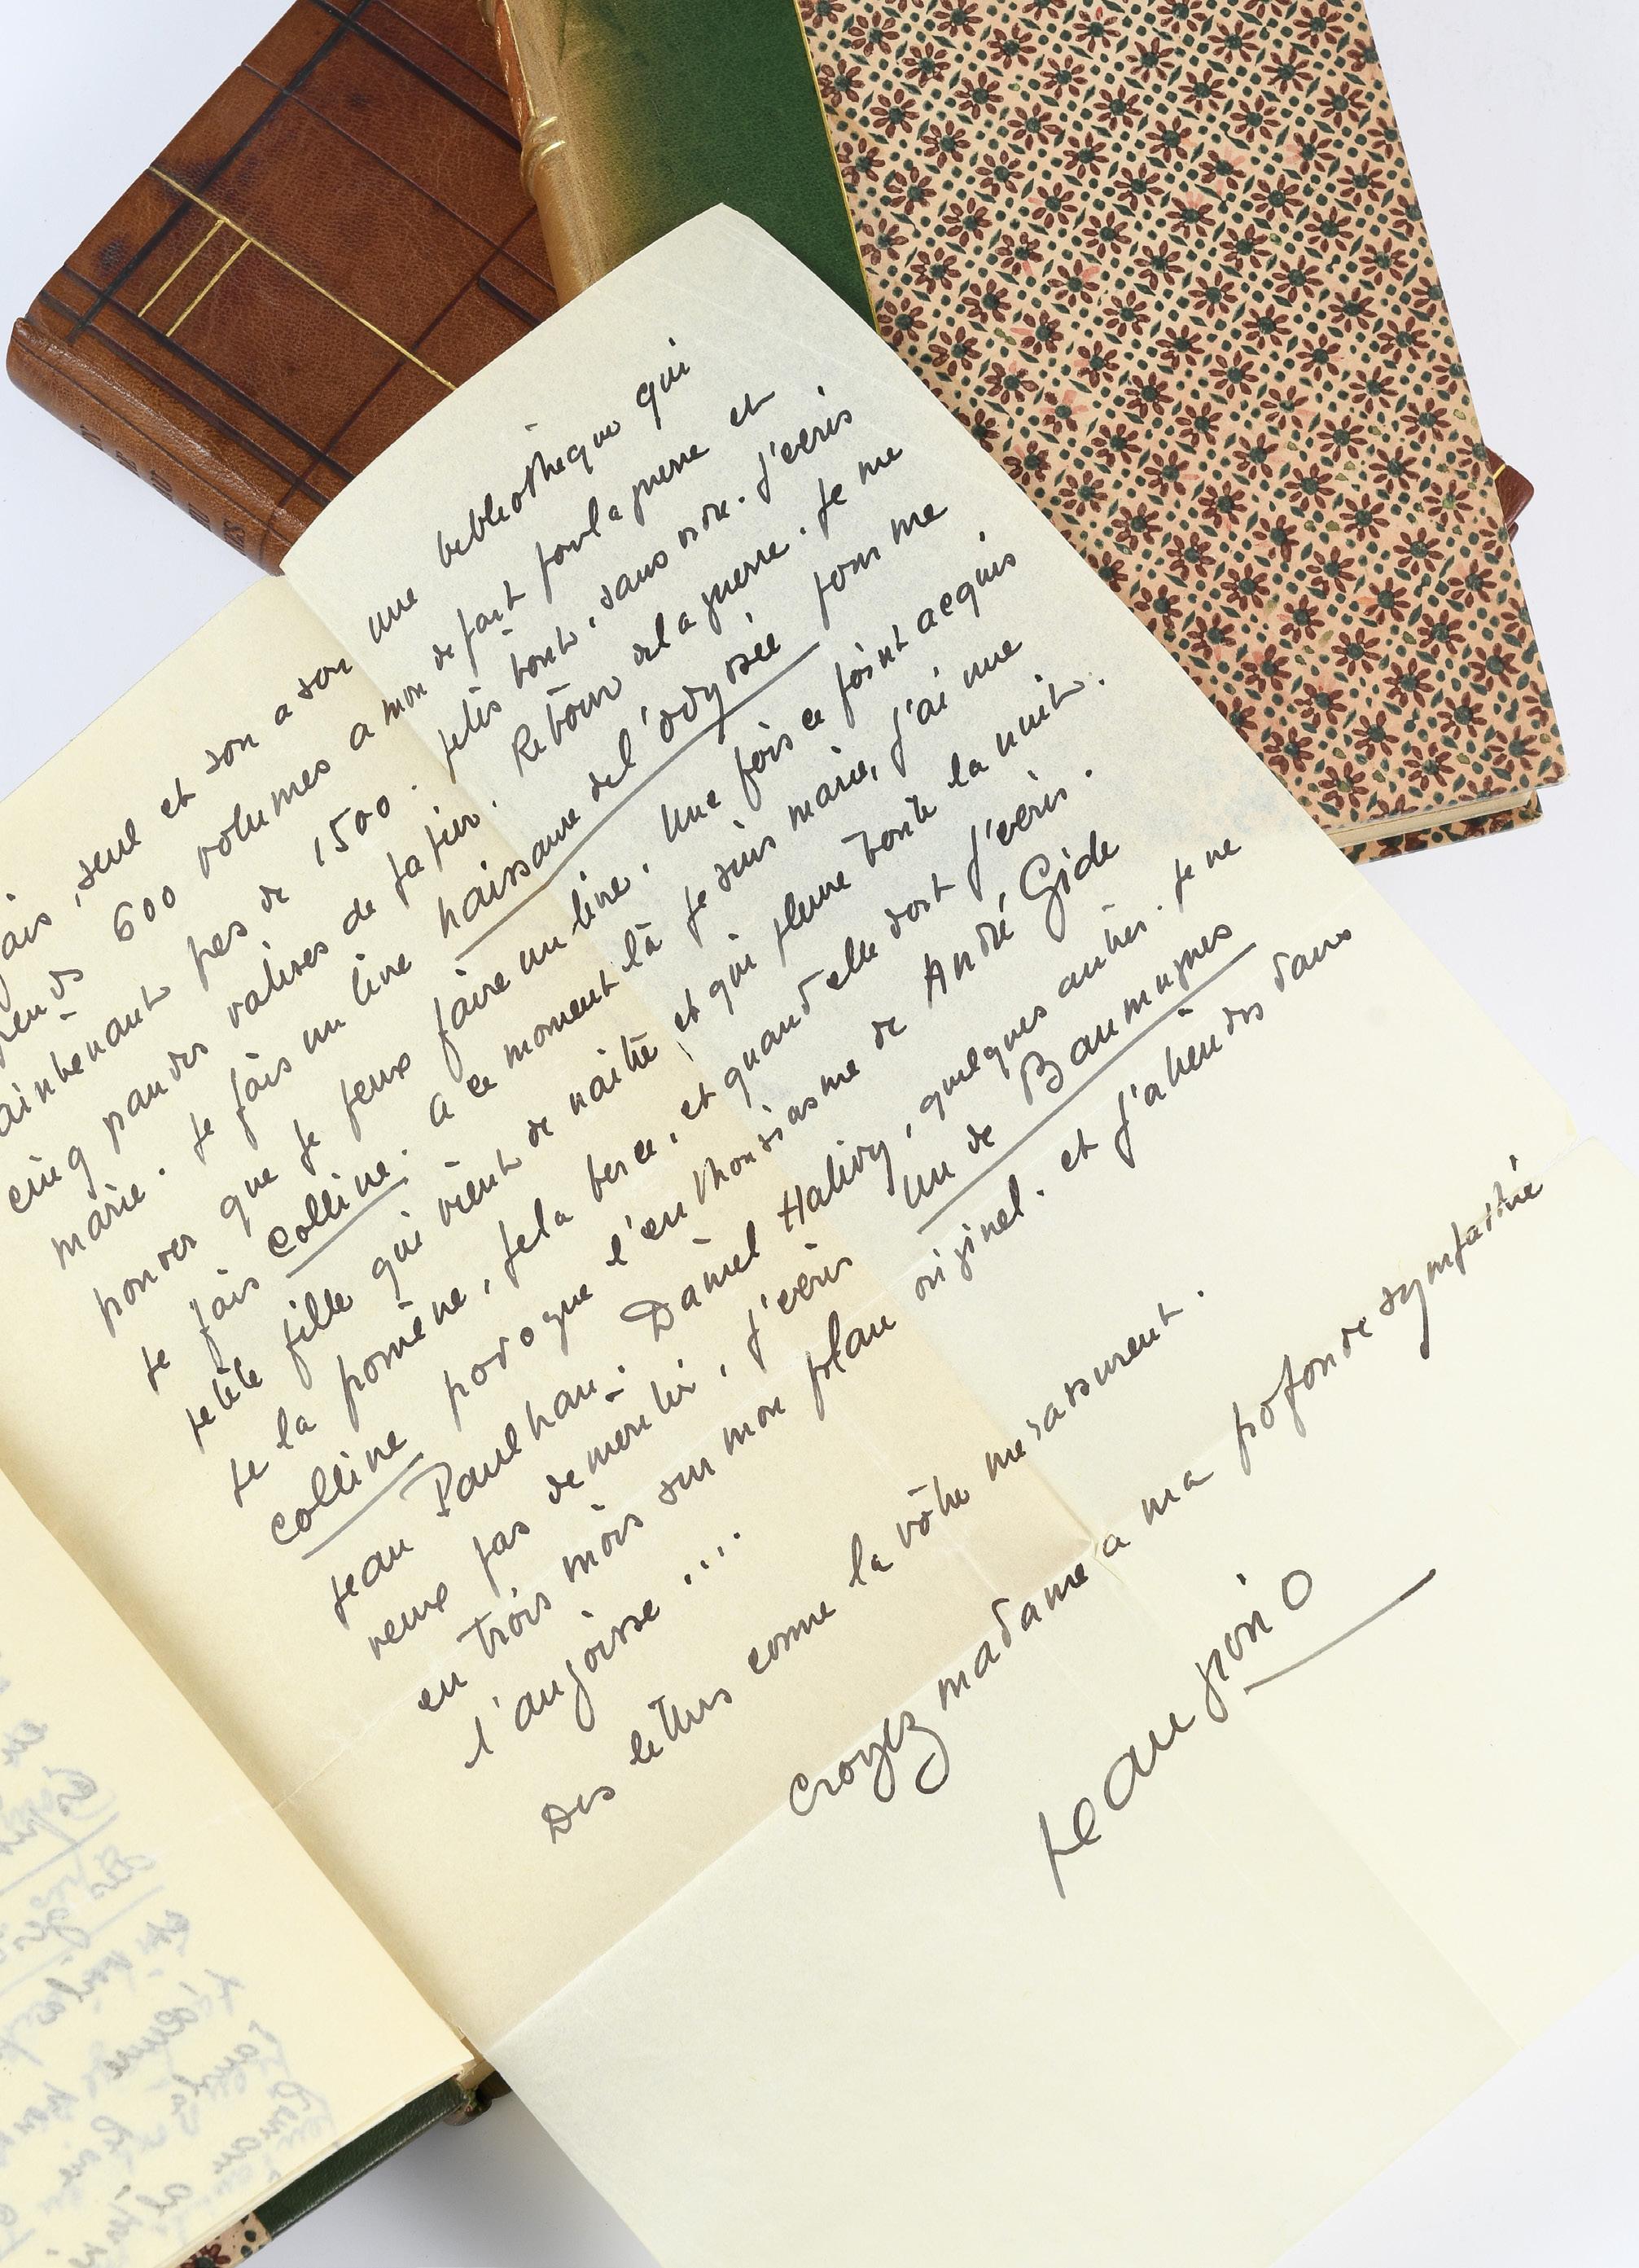 fais, seul et son a son une bibliothèque qui
600 volumes a mon départ pour la guerre et
maintenant pres de 1500. jetés toute, sans ordre. J'ecris
cinq pandes valises de papier. Retour de la guerre. Je me
marie. Je fais un livre naissance de l'odyssée pour me
prouver que je peux faire un livre. Une fois ce point acquis
je fais Colline. a ce moment là je suis marié, j'ai une
petite fille qui vient de naître et qui pleure toute la nuit.
Je la promène, je la berce, et quand elle dort j'ecris.
Colline provoque l'enthousiasme de André Gide
Jean Paulhan. Daniel Halévy, quelques autres. Je ne
veux pas démentir, j'écris Un de Baumugnes
en trois mois sur mon plan originel. et j'attends dans
l'angoisse ....
Des lettres comme la vôtre me rassurent.
Croyez madame a ma profonde sympathie
Jean Giono